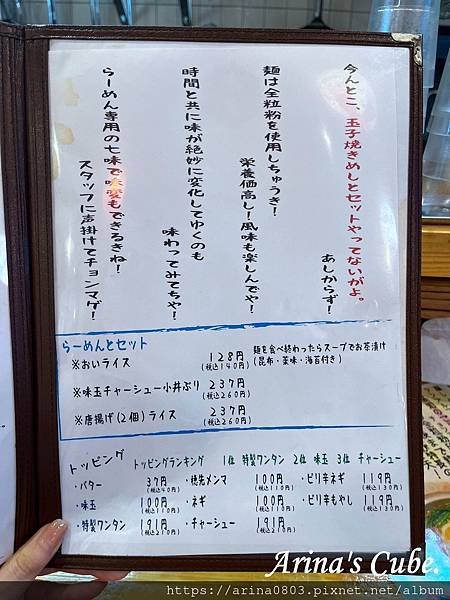 今んとこ、玉子焼きめしとセットやってないがよ。
あしからず！
麺は全粒粉を使用しちゅうき！
栄養価高し！風味も楽しんでや！
時間と共に味が絶妙に変化してゆくのも
味わってみてちや！
らーめん専用の七味で味変もできるきね！
スタッフに声掛けてチョンマゲ！
らーめんとセット
※おいライス 128円
(税込140円)
麺を食べ終わったらスープでお茶漬け
(昆布・薬味・海苔付き)
※味玉チャーシュー小丼ぶり 237円
(税込260円)
※唐揚げ(2個)ライス 237円
(税込260円)
トッピング
トッピングランキング 1位 特製ワンタン 2位 味玉 3位 チャーシュー
・バター 37円 ・穂先メンマ 100円 ・ピリ辛ネギ 119円
(税込40円) (税込110円) (税込130円)
・味玉 100円 ・ネギ 100円 ・ピリ辛もやし 119円
(税込110円) (税込110円) (税込130円)
・特製ワンタン 191円 ・チャーシュー 191円
(税込210円) (税込210円)
Arina's Cube.
Arina's Cube.
https://arina0803.pixnet.net/album